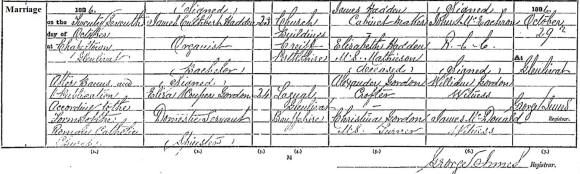 Marriage
1886.
on the Twenty Seventh
day of October
at Chapeltown
Glenlivat
After Banns and
Publication
According to the
Forms of the
Roman Catholic
Church
(1.)
(Signed)
James Cuthbert Hadden
Organist
Bachelor
(Signed)
Eliza Gordon
Domestic Servant
Spinster
(2.)
23
24
(3.)
Church
Buildings
Crieff
Perthshire
Glenlivat
Banffshire
(4.)
James Hadden
Cabinet Maker
Elizabeth Hadden
M.S. Mathieson
(deceased)
Alexander Gordon
Crofter
Christina Gordon
M.S. Turner
(5.)
(Signed)
R. C. C.
(Signed)
William Gordon
Witness
James McDonald
Witness
(6.)
1886.
October
29th
At
Glenlivat
George Innes
Registrar.
(7.)
George Innes Registrar.